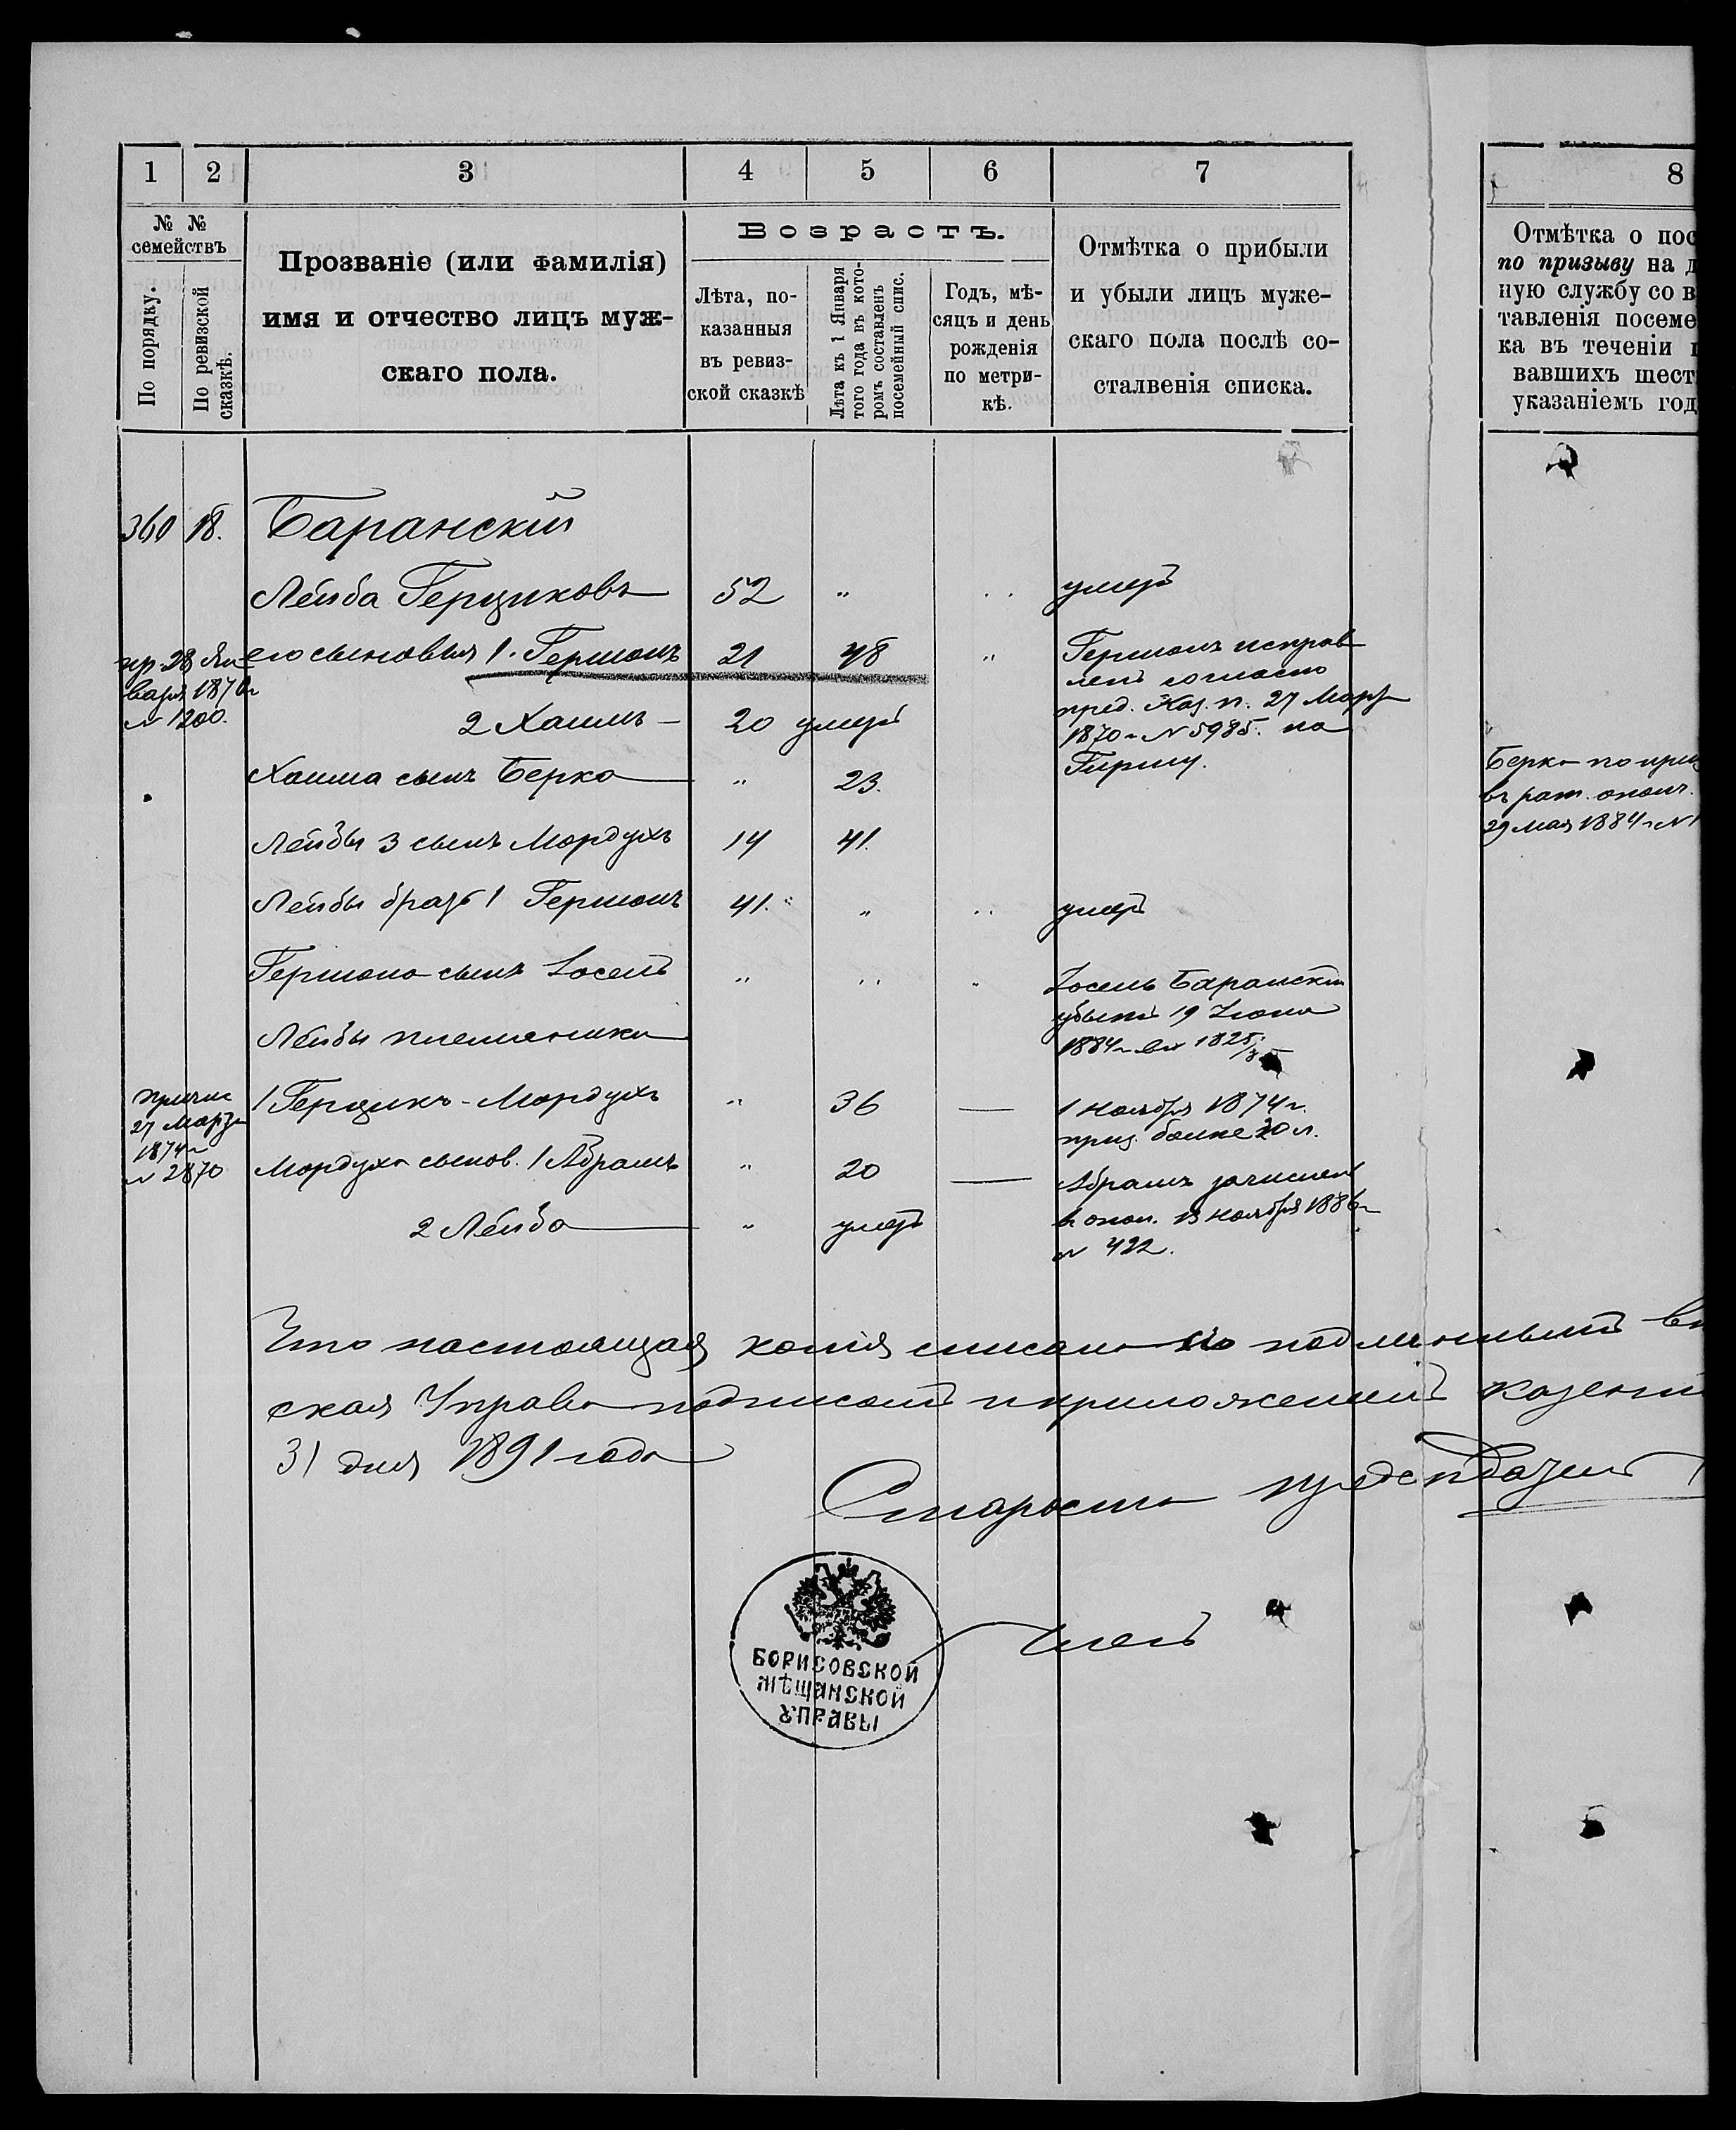 1 2 3 4 5 6 7 8
№ №
семействъ
По порядку.
По ревизской
сказкѣ.
Прозваніе (или фамилія)
имя и отчество лицъ муж-
скаго пола.
Возрастъ.
Лѣта, по-
казанныя
въ ревиз-
ской сказкѣ
Лѣта къ 1 Января
того года въ кото-
ромъ составленъ
посемейный спис.
Годъ, мѣ-
сяцъ и день
рожденія
по метри-
кѣ.
Отмѣтка о прибыли
и убыли лицъ муже-
скаго пола послѣ со-
сталвенія списка.
Отмѣтка о пос
по призыву на д
ную службу со в
тавленія посеме
ка въ теченіи
вавшихъ шест
указаніемъ год
360 18. Баранскій
Лейба Герциковъ 52 " " умеръ
пр. 28 Ян-
варя 1870 г
№ 1200.
его сыновья 1. Гершонъ 21 48 "
Гершонъ исправ
ленъ согласно
пред. Каз. п. 27 Марта
1870 г № 5985. на
Гиршу.
2 Хаимъ — 20 умеръ
Хаима сынъ Берка " 23.
Берка по приз
въ рат. ополч.
29 Мая 1884 г №
Лейбы 3 сынъ Мордухъ 14 41.
Лейбы братъ 1 Гершонъ 41. " " умеръ
Гершона сынъ Іосель " " "
Іосель Баранскій
убылъ 19 Іюня
1884 г вх 1825
Лейбы племяники
причис
27 Марта
1874 г
№ 2870
1 Герцикъ-Мордухъ " 36 —
1 ноября 1874 г.
приз. болѣе 20 л.
Мордуха сынов. 1 Абрамъ " 20 —
Абрамъ зачисленъ
в опол. 13 ноября 1886 г
№ 422.
2 Лейба " умеръ
Что настоящая копія списана съ подлинной въ
ская Управа подписомъ и приложеніемъ казенной
31 дня 1891 года
Староста предсѣдатель
Членъ
БОРИСОВСКОЙ
МѢЩАНСКОЙ
УПРАВЫ